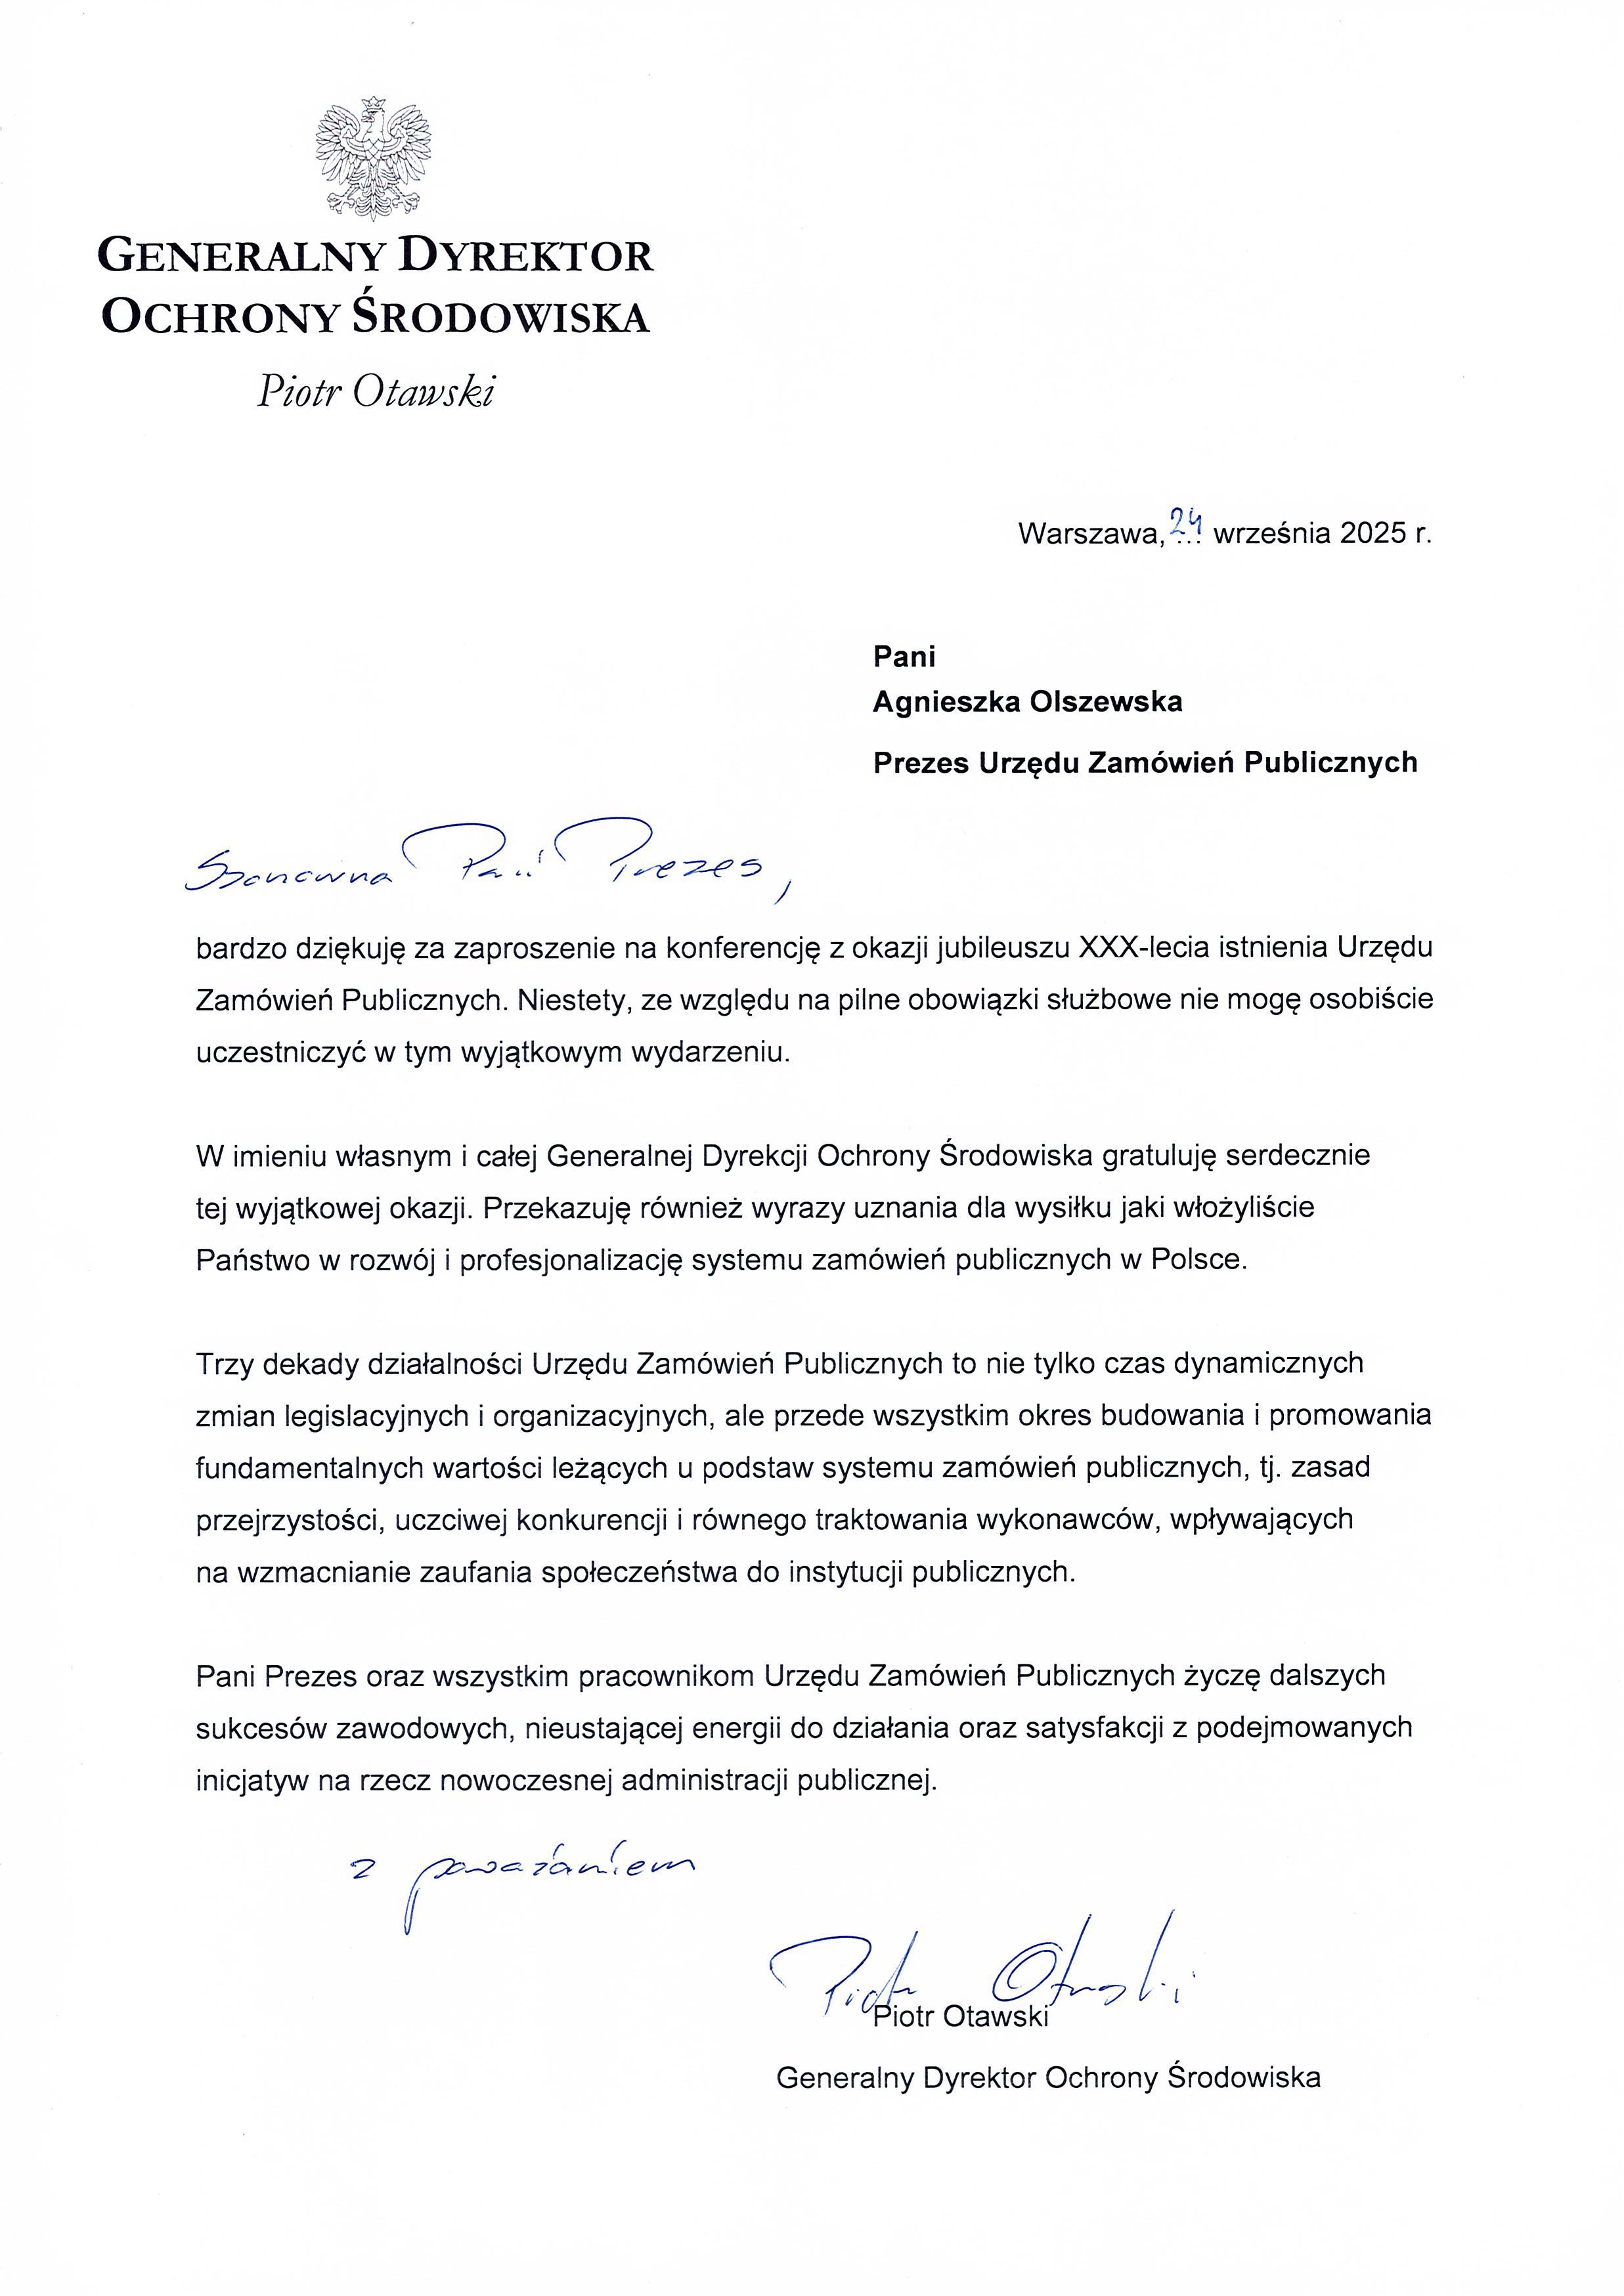 GENERALNY DYREKTOR
OCHRONY ŚRODOWISKA
Piotr Otawski
Warszawa, 24 września 2025 r.
Pani
Agnieszka Olszewska
Prezes Urzędu Zamówień Publicznych
Szanowna Pani Prezes,
bardzo dziękuję za zaproszenie na konferencję z okazji jubileuszu XXX-lecia istnienia Urzędu
Zamówień Publicznych. Niestety, ze względu na pilne obowiązki służbowe nie mogę osobiście
uczestniczyć w tym wyjątkowym wydarzeniu.
W imieniu własnym i całej Generalnej Dyrekcji Ochrony Środowiska gratuluję serdecznie
tej wyjątkowej okazji. Przekazuję również wyrazy uznania dla wysiłku jaki włożyliście
Państwo w rozwój i profesjonalizację systemu zamówień publicznych w Polsce.
Trzy dekady działalności Urzędu Zamówień Publicznych to nie tylko czas dynamicznych
zmian legislacyjnych i organizacyjnych, ale przede wszystkim okres budowania i promowania
fundamentalnych wartości leżących u podstaw systemu zamówień publicznych, tj. zasad
przejrzystości, uczciwej konkurencji i równego traktowania wykonawców, wpływających
na wzmacnianie zaufania społeczeństwa do instytucji publicznych.
Pani Prezes oraz wszystkim pracownikom Urzędu Zamówień Publicznych życzę dalszych
sukcesów zawodowych, nieustającej energii do działania oraz satysfakcji z podejmowanych
inicjatyw na rzecz nowoczesnej administracji publicznej.
z poważaniem
Piotr Otawski
Piotr Otawski
Generalny Dyrektor Ochrony Środowiska